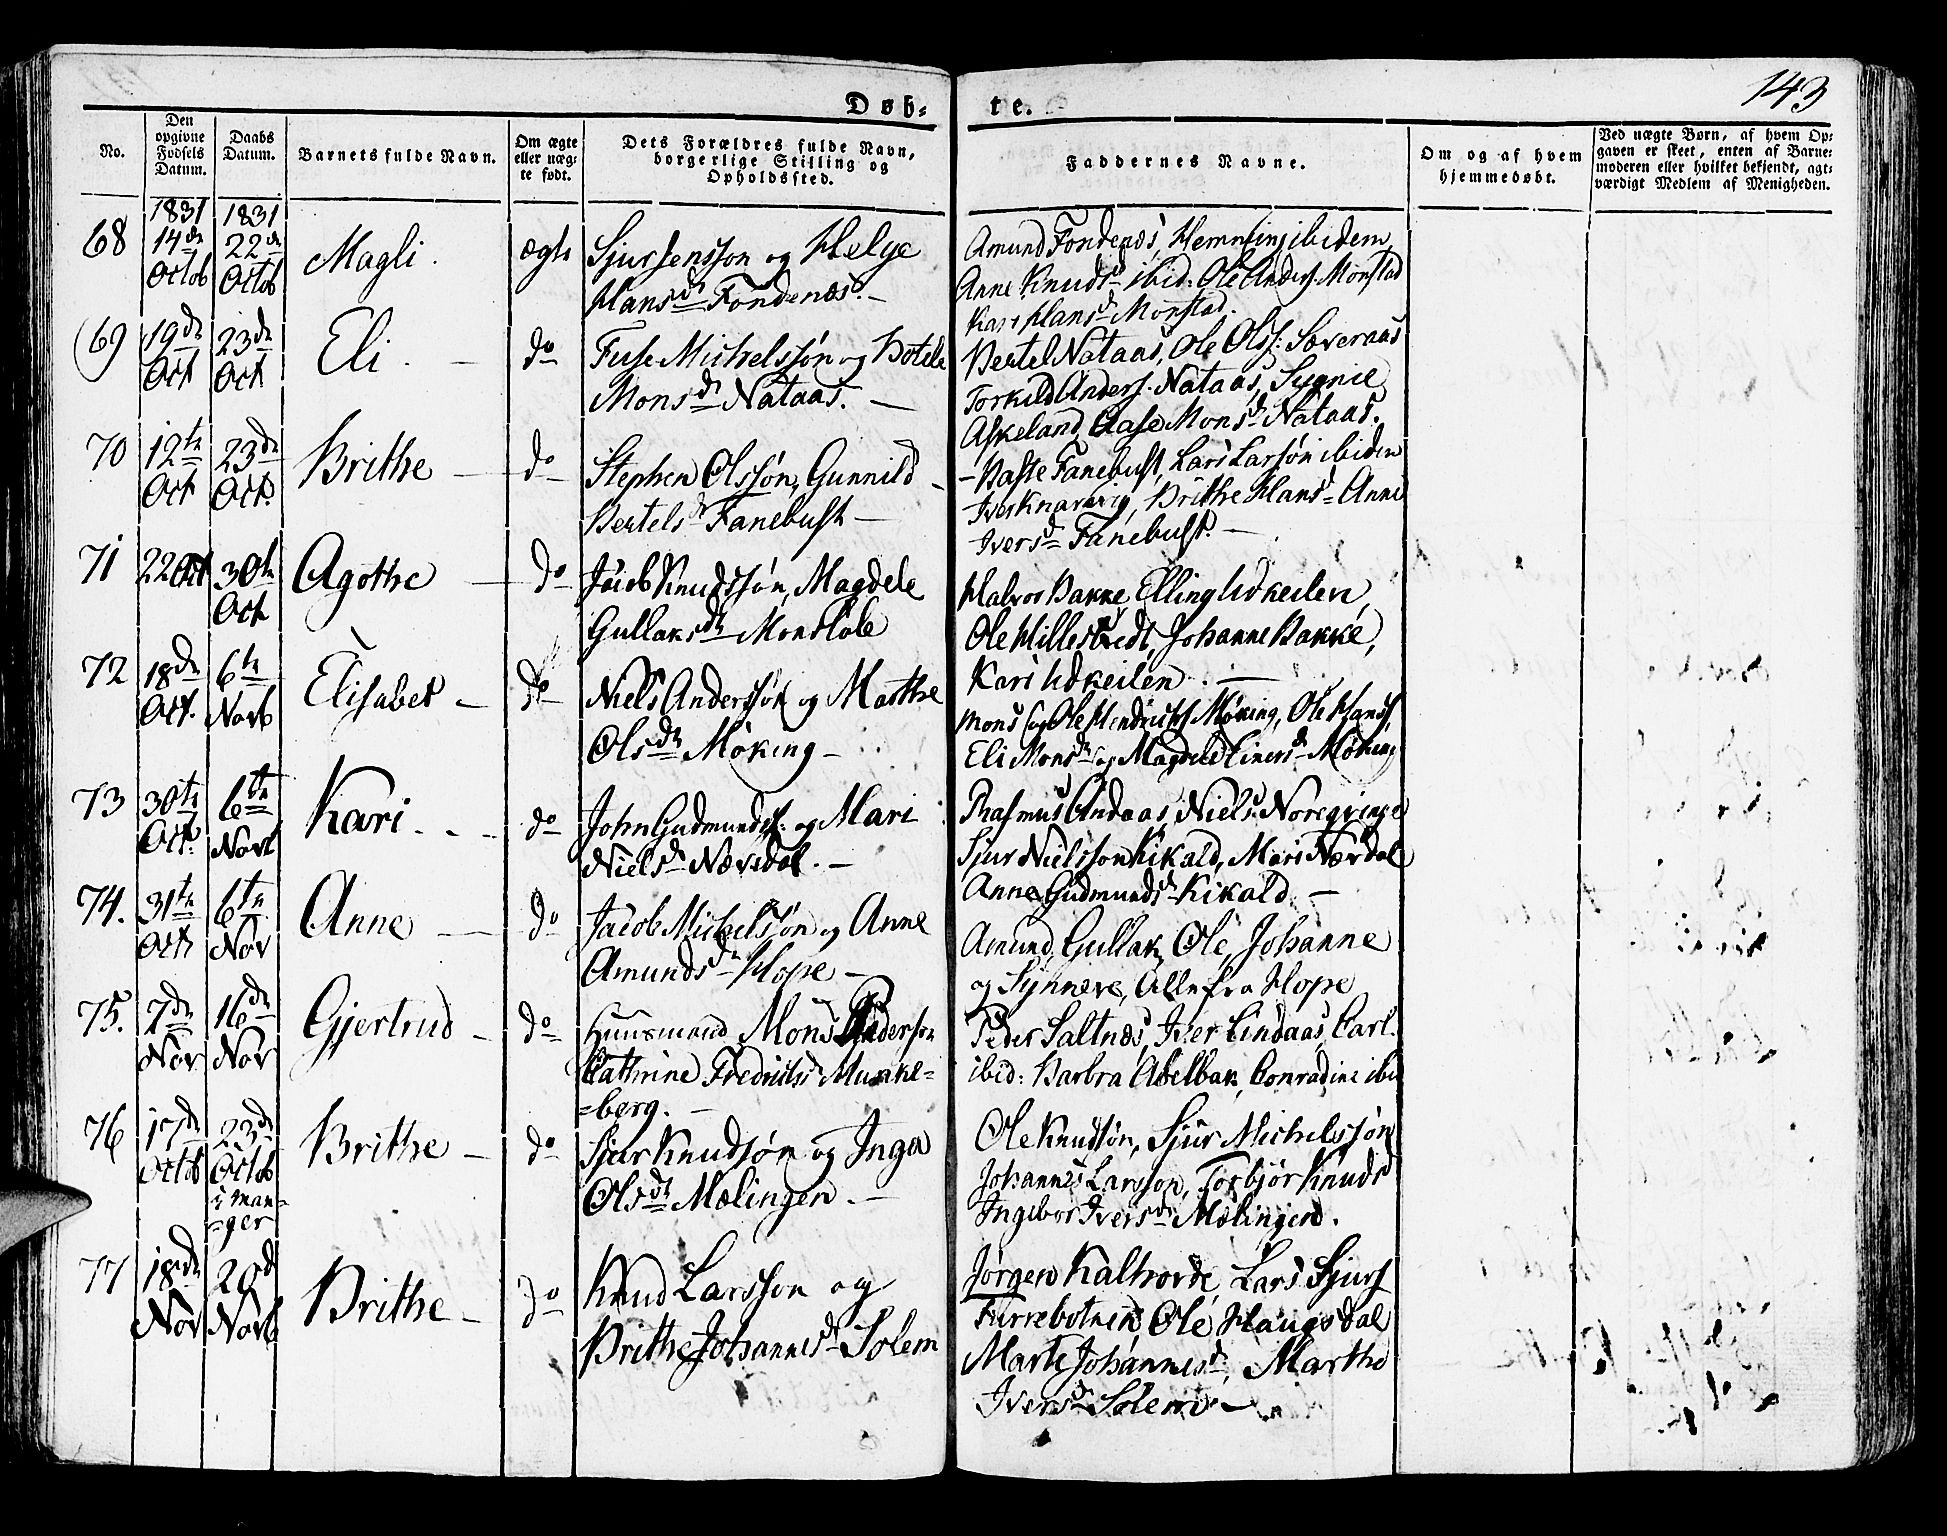 143
Døb-
te.
No.
Den opgivne Fødsels Datum.
Daabs Datum.
Barnets fulde Navn.
Om ægte eller uægte født.
Dets Forældres fulde Navn, borgerlige Stilling og Opholdssted.
Faddernes Navne.
Om og af hvem hjemmedøbt.
Ved uægte Børn, af hvem Opgaven er skeet, enten af Barnemoderen eller hvilket bekjendt, agtværdigt Medlem af Menigheden.
1831 1831
68 14de Octob 22de Octob Magli. ægte Sjur Jensson og Helge
Hansdr Fondenæs. -
Amund Fondenæs, Hemming ibidem,
Anne Knudsd ibid: Ole Anders. Monstad
Kari Hansd Monstad.
69 19de Oct 23de Oct Eli. - do Fuse Michelssøn og Botele
Monsdr Nataas. -
Bertel Nataas, Ole Olss: Sæveraas
Torkild Anders. Nataas, Sygnie
Askeland, Aase Monsd Nataas.
70 12te Oct 23de Oct. Brithe - do Stephen Olssøn, Gunnild -
Bertelsdr Fanebust -
- Baste Fanebust, Lars Larssøn ibidem
Iver Knarvig, Brithe Hansd= Anne
Iversd Fanebust. -
71 22 Oct 30te Oct Agothe - do Jacob Knudssøn, Magdele
Gullaksdr Monsløle
Halvor Bakke, Elling Udkeilen,
Ole Hillestvedt, Johanne Bakke,
Kari Udkeilen. -
72 18de Oct. 6te Novb Elisabet - do Niels Anderssøn og Marthe
Olsdtr Møking -
Mons og Ole Hendrichs Møking, Ole Hanss
Eli Monsdr og Magdele Einersdr Møking
73 30te Oct. 6te Novb Kari. - - do John Gudmundss: og Mari
Nielsdr Nævedal. -
Rasmus Andaas, Niels Noregvinge
Sjur Nielsson Kikald, Mari Nævdal
Anne Gudmundsd Kikald. -
74. 31te Oct 6te Nov Anne - do Jacob Michelssøn og Anne
Amundsdr Hope -
Amund, Gullak, Ole, Johanne
og Synneve, Alle fra Hope
75. 7de Nov 16de Nov Gjertrud - do Huusmand Mons Pederson
Cathrine Fredriksd Munke=
=berg. -
Peder Saltnæs, Iver Lindaas, Carl.
ibid: Barbra Abelbak, Conradine ibid
76 17de Octob 23de Octob i Man=
=ger Brithe - do Sjur Knudsøn og Inga
Olsdtr Mælingen. -
Ole Knudsøn, Sjur Michelssøn
Johannes Larsson, Torbjør Knudsd
Ingebor Iversdr Mælingen.
77 18de Nov 20d Novb Brithe - do Knud Larsson og
Brithe Johannesdr Solem
Jørgen Kaltvorde, Lars Sjurs
Furrebotnen Ole Haugsdal
Marte Johannesd:, Marthe
Iversdr Solem. -